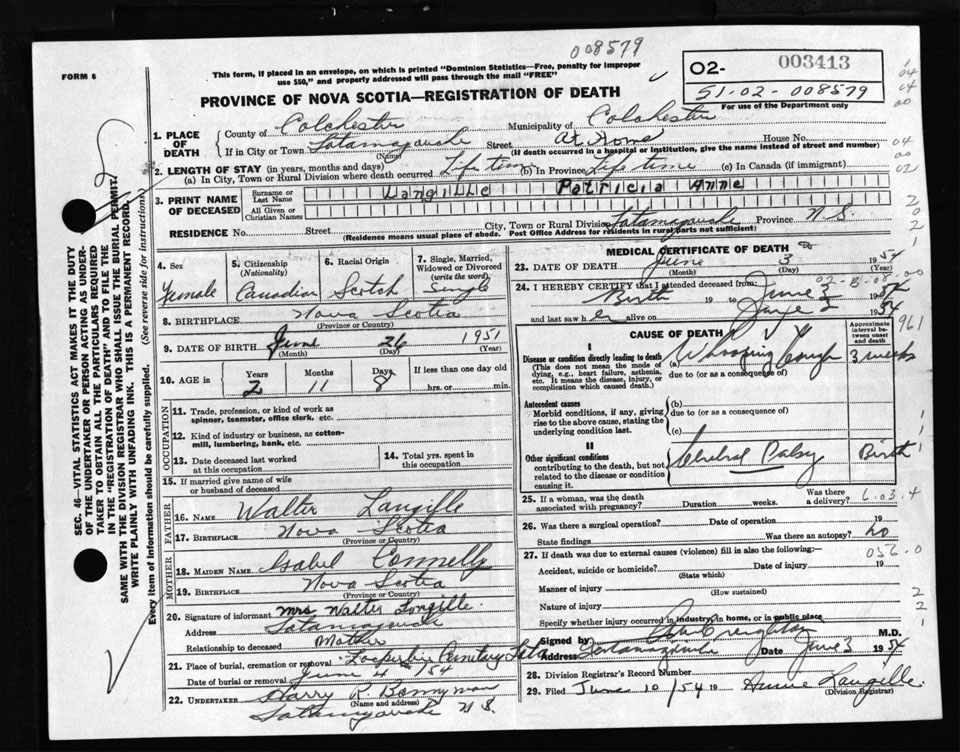 008579
FORM 6
This form, if placed in an envelope, on which is printed "Dominion Statistics—Free, penalty for improper
use $50," and properly addressed will pass through the mail "FREE"
O2- 003413
51-02-008579
For use of the Department only
PROVINCE OF NOVA SCOTIA—REGISTRATION OF DEATH
1. PLACE OF DEATH
County of Colchester Municipality of Colchester
If in City or Town Tatamagouche Street At Home House No.
(Name) (If death occurred in a hospital or institution, give the name instead of street and number)
2. LENGTH OF STAY (in years, months and days)
(a) In City, Town or Rural Division where death occurred Life time (b) in Province Life time (c) in Canada (if immigrant)
3. PRINT NAME OF DECEASED
Surname or Last Name Langille Patricia Anne
All Given or Christian Names
RESIDENCE No. Street City, Town or Rural Division Tatamagouche Province N.S.
(Residence means usual place of abode. Post Office Address for residents in rural parts not sufficient)
4. Sex Female
5. Citizenship (Nationality) Canadian
6. Racial Origin Scotch
7. Single, Married, Widowed or Divorced (write the word) Single
8. BIRTHPLACE Nova Scotia
(Province or Country)
9. DATE OF BIRTH June 26 1951
(Month) (Day) (Year)
10. AGE in Years 2 Months 11 Days 8 If less than one day old hrs. or min.
OCCUPATION
11. Trade, profession, or kind of work as spinner, teamster, office clerk, etc.
12. Kind of industry or business, as cotton-mill, lumbering, bank, etc.
13. Date deceased last worked at this occupation
14. Total yrs. spent in this occupation
15. If married give name of wife or husband of deceased
FATHER
16. NAME Walter Langille
17. BIRTHPLACE Nova Scotia
(Province or Country)
MOTHER
18. MAIDEN NAME Isabel Connelly
19. BIRTHPLACE Nova Scotia
(Province or Country)
20. Signature of informant Mrs Walter Langille.
Address Tatamagouche
Relationship to deceased Mother
21. Place of burial, cremation or removal Cemetery
Date of burial or removal June 4 /54
22. UNDERTAKER Harry R Bonnyman
(Name and address)
Tatamagouche N S.
MEDICAL CERTIFICATE OF DEATH
23. DATE OF DEATH June 3 1954
(Month) (Day) (Year)
24. I HEREBY CERTIFY that I attended deceased from:
Birth 19 to June 3 1954
and last saw her alive on June 2 1954
CAUSE OF DEATH
Approximate interval between onset and death
I
Disease or condition directly leading to death
(This does not mean the mode of dying, e.g., heart failure, asthenia, etc. It means the disease, injury, or complication which caused death.)
(a) Whooping Cough 3 weeks
due to (or as a consequence of)
Antecedent causes
Morbid conditions, if any, giving rise to the above cause, stating the underlying condition last.
(b)
due to (or as a consequence of)
(c)
II
Other significant conditions
contributing to the death, but not related to the disease or condition causing it.
Cerebral Palsy Birth
25. If a woman, was the death associated with pregnancy? Duration weeks. Was there a delivery?
6.03.4
26. Was there a surgical operation? Date of operation 19
State findings Was there an autopsy? no
27. If death was due to external causes (violence) fill in also the following:—
056.0
Accident, suicide or homicide? Date of injury 19
(State which)
Manner of injury
(How sustained)
Nature of injury
Specify whether injury occurred in industry in home, or in public place
Signed by Creighton M.D.
Address Tatamagouche Date June 3 1954
28. Division Registrar's Record Number
29. Filed June 10/54 19 Annie Langille.
(Division Registrar)
SEC. 46—VITAL STATISTICS ACT MAKES IT THE DUTY
OF THE UNDERTAKER OR PERSON ACTING AS UNDER-
TAKER TO OBTAIN ALL THE PARTICULARS REQUIRED
IN THE "REGISTRATION OF DEATH" AND TO FILE THE
SAME WITH THE DIVISION REGISTRAR WHO SHALL ISSUE THE BURIAL PERMIT.
WRITE PLAINLY WITH UNFADING INK. THIS IS A PERMANENT RECORD.
Every item of information should be carefully supplied. (See reverse side for instructions)